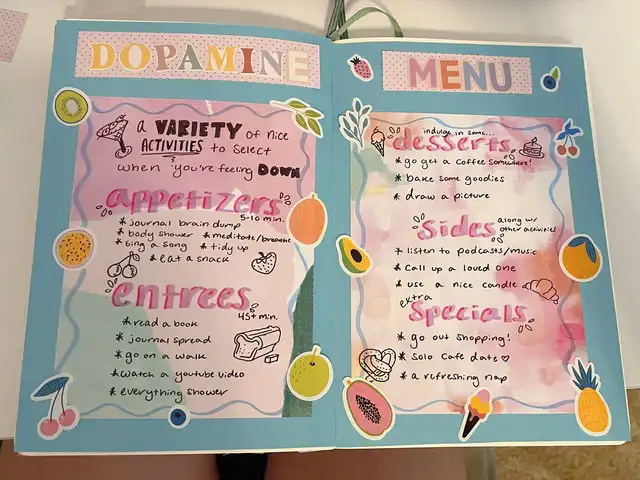 DOPAMINE
a VARIETY of nice
ACTIVITIES to select
when you're feeling DOWN
appetizers
5-10 min.
* journal brain dump
* body shower * meditate/breathe
* sing a song * tidy up
* eat a snack
entrees
45+ min.
* read a book
* journal spread
* go on a walk
* watch a youtube video
* everything shower
MENU
indulge in some...
desserts
* go get a coffee somewhere!
* bake some goodies
* draw a picture
Sides along w/
other activities
* listen to podcasts/music
* call up a loved one
* use a nice candle
extra
Specials
* go out shopping!
* solo cafe date ♡
* a refreshing nap